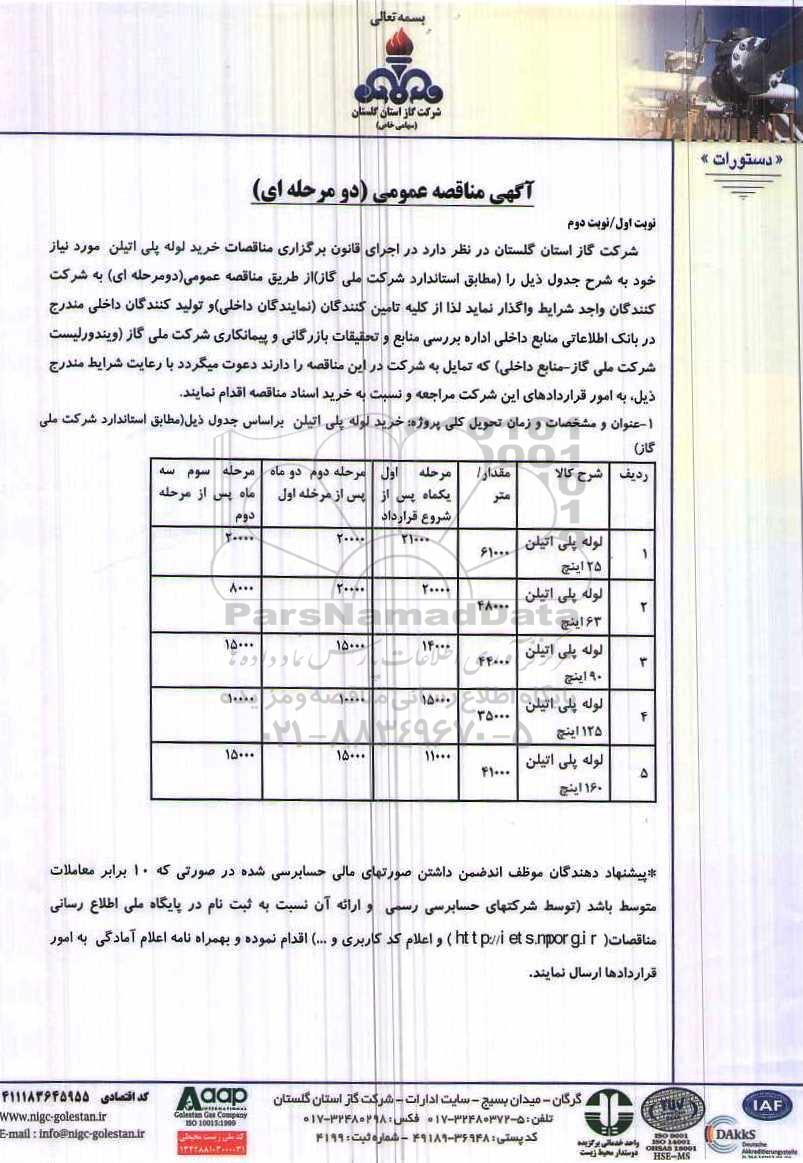 بسمه تعالی
شرکت گاز استان گلستان
(سهامی خاص)
« دستورات »
آگهی مناقصه عمومی (دو مرحله ای)
نوبت اول/نوبت دوم
شرکت گاز استان گلستان در نظر دارد در اجرای قانون برگزاری مناقصات خرید لوله پلی اتیلن مورد نیاز
خود به شرح جدول ذیل را (مطابق استاندارد شرکت ملی گاز)از طریق مناقصه عمومی(دومرحله ای) به شرکت
کنندگان واجد شرایط واگذار نماید لذا از کلیه تامین کنندگان (نمایندگان داخلی)و تولید کنندگان داخلی مندرج
در بانک اطلاعاتی منابع داخلی اداره بررسی منابع و تحقیقات بازرگانی و پیمانکاری شرکت ملی گاز (ویندورلیست
شرکت ملی گاز-منابع داخلی) که تمایل به شرکت در این مناقصه را دارند دعوت میگردد با رعایت شرایط مندرج
ذیل، به امور قراردادهای این شرکت مراجعه و نسبت به خرید اسناد مناقصه اقدام نمایند.
۱-عنوان و مشخصات و زمان تحویل کلی پروژه: خرید لوله پلی اتیلن براساس جدول ذیل(مطابق استاندارد شرکت ملی
گاز)
ردیف شرح کالا مقدار/ مرحله اول مرحله دوم دو ماه مرحله سوم سه
متر یکماه پس از پس از مرحله اول ماه پس از مرحله
شروع قرارداد دوم
۱ لوله پلی اتیلن ۶۱۰۰۰ ۲۱۰۰۰ ۲۰۰۰۰ ۲۰۰۰۰
۲۵ اینچ
۲ لوله پلی اتیلن ۴۸۰۰۰ ۲۰۰۰۰ ۲۰۰۰۰ ۸۰۰۰
۶۳ اینچ
۳ لوله پلی اتیلن ۴۴۰۰۰ ۱۴۰۰۰ ۱۵۰۰۰ ۱۵۰۰۰
۹۰ اینچ
۴ لوله پلی اتیلن ۳۵۰۰۰ ۱۵۰۰۰ ۱۰۰۰۰ ۱۰۰۰۰
۱۲۵ اینچ
۵ لوله پلی اتیلن ۴۱۰۰۰ ۱۱۰۰۰ ۱۵۰۰۰ ۱۵۰۰۰
۱۶۰ اینچ
ParsNamadData
مرکز فرآوری اطلاعات پارس نماد داده ها
پایگاه اطلاع رسانی مناقصه و مزایده
۰۲۱-۸۸۳۴۹۶۷۰-۵
*پیشنهاد دهندگان موظف اندضمن داشتن صورتهای مالی حسابرسی شده در صورتی که ۱۰ برابر معاملات
متوسط باشد (توسط شرکتهای حسابرسی رسمی و ارائه آن نسبت به ثبت نام در پایگاه ملی اطلاع رسانی
مناقصات( http://iets.mporg.ir ) و اعلام کد کاربری و ...) اقدام نموده و بهمراه نامه اعلام آمادگی به امور
قراردادها ارسال نمایند.
گرگان - میدان بسیج - سایت ادارات - شرکت گاز استان گلستان
تلفن: ۵-۳۲۴۸۰۳۷۲-۰۱۷ فکس: ۳۲۴۸۰۲۹۸-۰۱۷
کد پستی: ۳۶۹۴۸-۴۹۱۸۹ - شماره ثبت: ۴۱۹۹
کد اقتصادی ۴۱۱۱۸۳۶۴۵۹۵۵
Www.nigc-golestan.ir
E-mail : info@nigc-golestan.ir
Aaap
INTERNATIONAL
Golestan Gas Company
ISO 10015:1999
کد ملی زیست محیطی
واحد خدماتی برگزیده
دوستدار محیط زیست
ISO 9001
ISO 14001
OHSAS 18001
HSE-MS
IAF
DAkkS
Deutsche
Akkreditierungsstelle